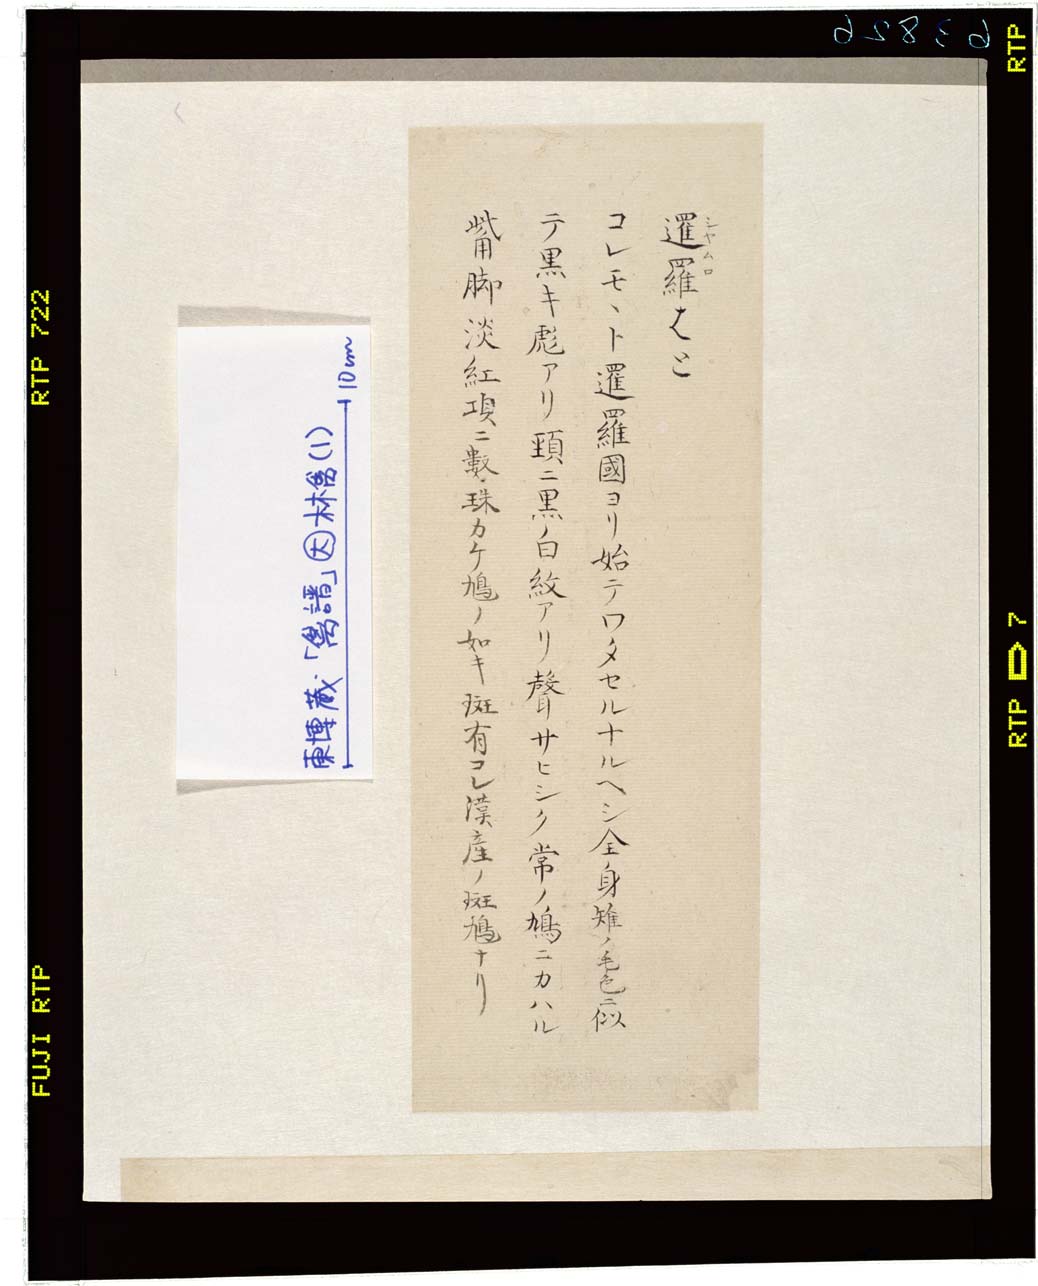 63826
RTP
暹羅はと
シヤムロ
コレモヽト暹羅國ヨリ始テワタセルナルヘシ全身雉ノ毛色ニ似
テ黒キ彪アリ頸ニ黒ノ白紋アリ聲サヒシク常ノ鳩ニカハル
觜脚淡紅項ニ數珠カケ鳩ノ如キ斑有コレ漢産ノ斑鳩ナリ
東博蔵・「鳥譜」㊅林禽(1)
10cm
RTP 722
FUJI RTP
RTP D 7